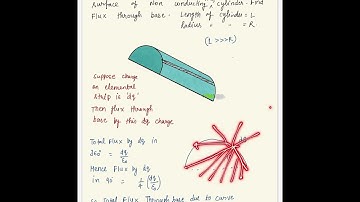 surface of Non conducting cylinder. Find
Flux through base. Length of cylinder = L
Radius " = R.
(L >>> R)
Suppose charge
on elemental
strip is 'dq'
Then flux through
base by this dq charge
Total Flux by dq in
360° = dq/ε₀
Hence Flux by dq
in 90° = 1/4 (dq/ε₀)
So Total Flux Through base due to curve